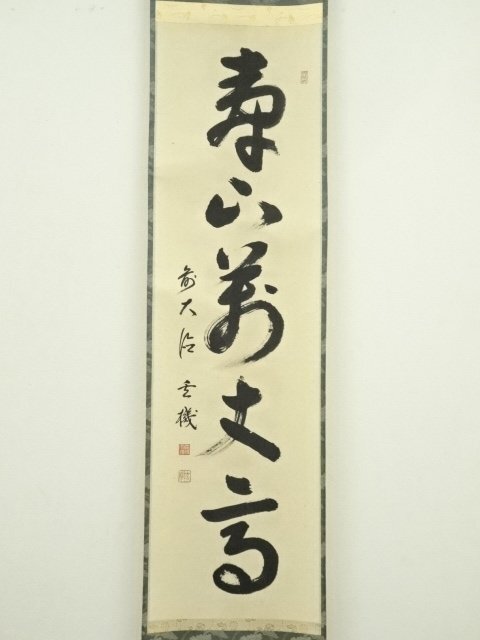 壽山萬丈高
前大徳玄機